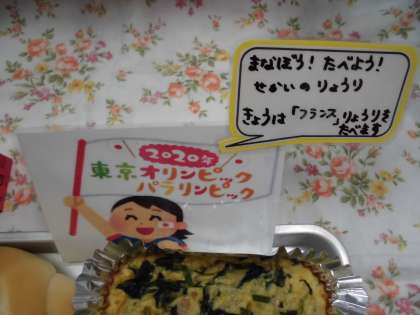 まなぼう！たべよう！
せかいのりょうり
きょうは「フランス」りょうりを
たべます
2020年
東京オリンピック
パラリンピック